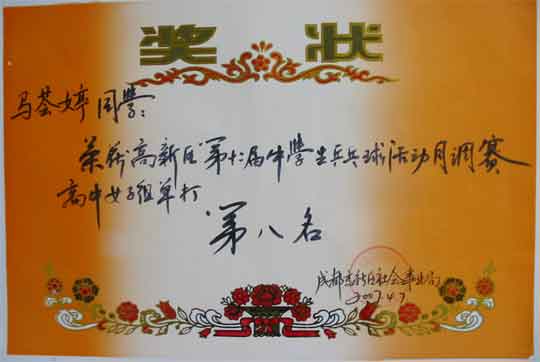 奖 状
马荟婷同学：
荣获高新区第十届中学生乒乓球活动月调赛
高中女子组单打
第八名
成都高新区社会事业局
2007.4.7